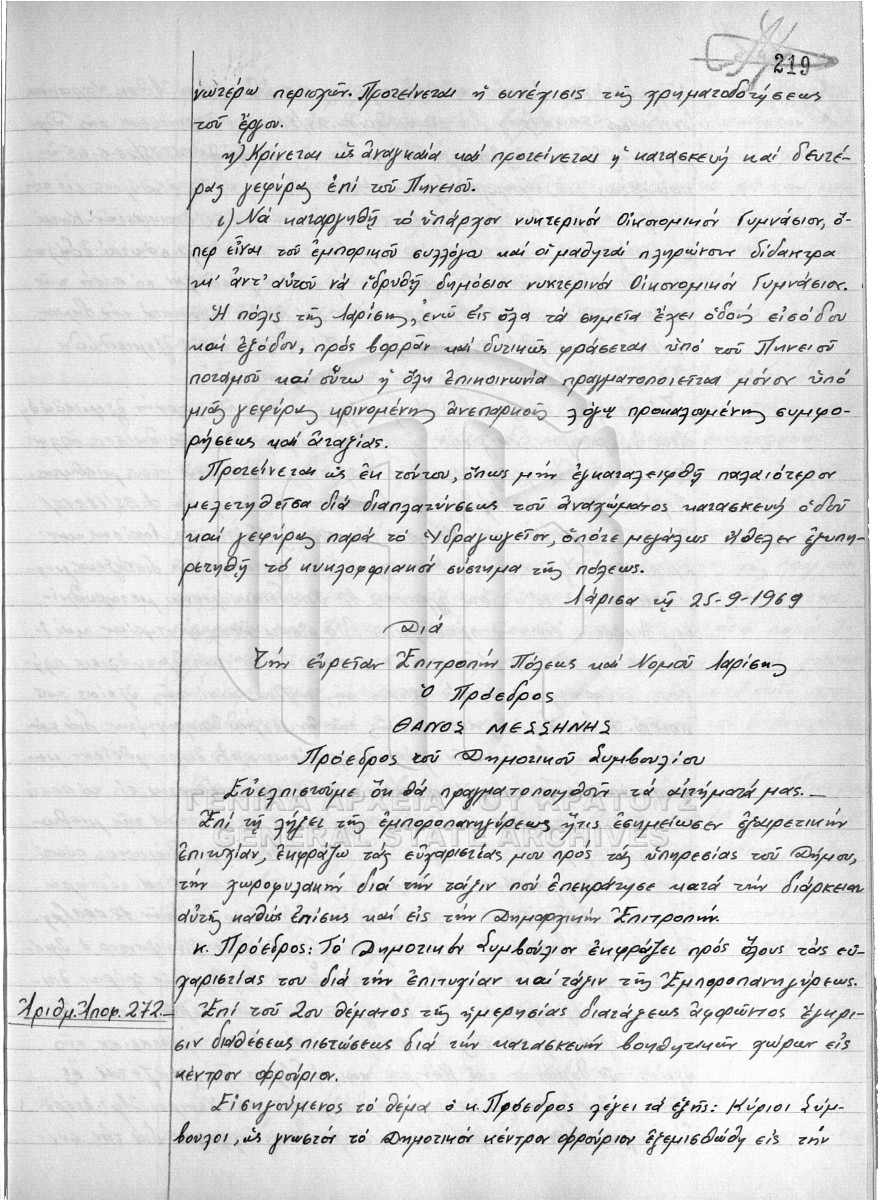 219
νωτέρω περιοχῶν. Προτείνεται ἡ συνέχισις τῆς χρηματοδοτήσεως
τοῦ ἔργου.
η) Κρίνεται ὡς ἀναγκαία καί προτείνεται ἡ κατασκευή καί δευτέ-
ρας γεφύρας ἐπί τοῦ Πηνειοῦ.
ι) Νά καταργηθῇ τό ὑπάρχον νυκτερινόν Οἰκονομικόν Γυμνάσιον, ὅ-
περ εἶναι τοῦ ἐμπορικοῦ συλλόγου καί οἱ μαθηταί πληρώνουν δίδακτρα
κι' ἀντ' αὐτοῦ νά ἱδρυθῇ δημόσιον νυκτερινόν Οἰκονομικόν Γυμνάσιον.
Ἡ πόλις τῆς Λαρίσης, ἐνῶ εἰς ὅλα τά σημεῖα ἔχει ὁδούς εἰσόδου
καί ἐξόδου, πρός βορρᾶν καί δυτικῶς φράσεται ὑπό τοῦ Πηνειοῦ
ποταμοῦ καί οὕτω ἡ ὅλη ἐπικοινωνία πραγματοποιεῖται μόνον ὑπό
μιᾶς γεφύρας κρινομένης ἀνεπαρκοῦς λόγῳ προκαλουμένης συμφο-
ρήσεως καί ἀταξίας.
Προτείνεται ὡς ἐκ τούτου, ὅπως μήν ἐγκαταλειφθῇ παλαιότερον
μελετηθεῖσα διά διαπλατύνσεως τοῦ ἀναχώματος κατασκευή ὁδοῦ
καί γεφύρας παρά τό Ὑδραγωγεῖον, ὁπότε μεγάλως ἤθελεν ἐξυπη-
ρετηθῇ τό κυκλοφοριακόν σύστημα τῆς πόλεως.
Λάρισα τῇ 25-9-1969
Διά
τήν εὐρεῖαν Ἐπιτροπήν Πόλεως καί Νομοῦ Λαρίσης
Ὁ Πρόεδρος
ΘΑΝΟΣ ΜΕΣΣΗΝΗΣ
Πρόεδρος τοῦ Δημοτικοῦ Συμβουλίου
Εὐελπιστοῦμε ὅτι θά πραγματοποιηθοῦν τά αἰτήματά μας.—
ΓΕΝΙΚΑ ΑΡΧΕΙΑ ΤΟΥ ΚΡΑΤΟΥΣ
Ἐπί τῇ λήξει τῆς ἐμποροπανηγύρεως ἥτις ἐσημείωσεν ἐξαιρετικήν
GENERAL STATE ARCHIVES
ἐπιτυχίαν, ἐκφράζω τάς εὐχαριστίας μου πρός τάς ὑπηρεσίας τοῦ Δήμου,
τήν χωροφυλακήν διά τήν τάξιν πού ἐπεκράτησε κατά τήν διάρκειαν
αὐτῆς καθώς ἐπίσης καί εἰς τήν Δημαρχικήν Ἐπιτροπήν.
κ. Πρόεδρος: Τό Δημοτικόν Συμβούλιον ἐκφράζει πρός ὅλους τάς εὐ-
χαριστίας του διά τήν ἐπιτυχίαν καί τάξιν τῆς Ἐμποροπανηγύρεως.
Ἀριθμ. Ἀποφ. 272.—
Ἐπί τοῦ 2ου θέματος τῆς ἡμερησίας διατάξεως ἀφορῶντος ἔγκρι-
σιν διαθέσεως πιστώσεως διά τήν κατασκευήν βοηθητικῶν χώρων εἰς
κέντρον φρούριον.
Εἰσηγούμενος τό θέμα ὁ κ. Πρόεδρος λέγει τά ἑξῆς: Κύριοι Σύμ-
βουλοι, ὡς γνωστόν τό Δημοτικόν κέντρον φρούριον ἐξεμισθώθη εἰς τήν